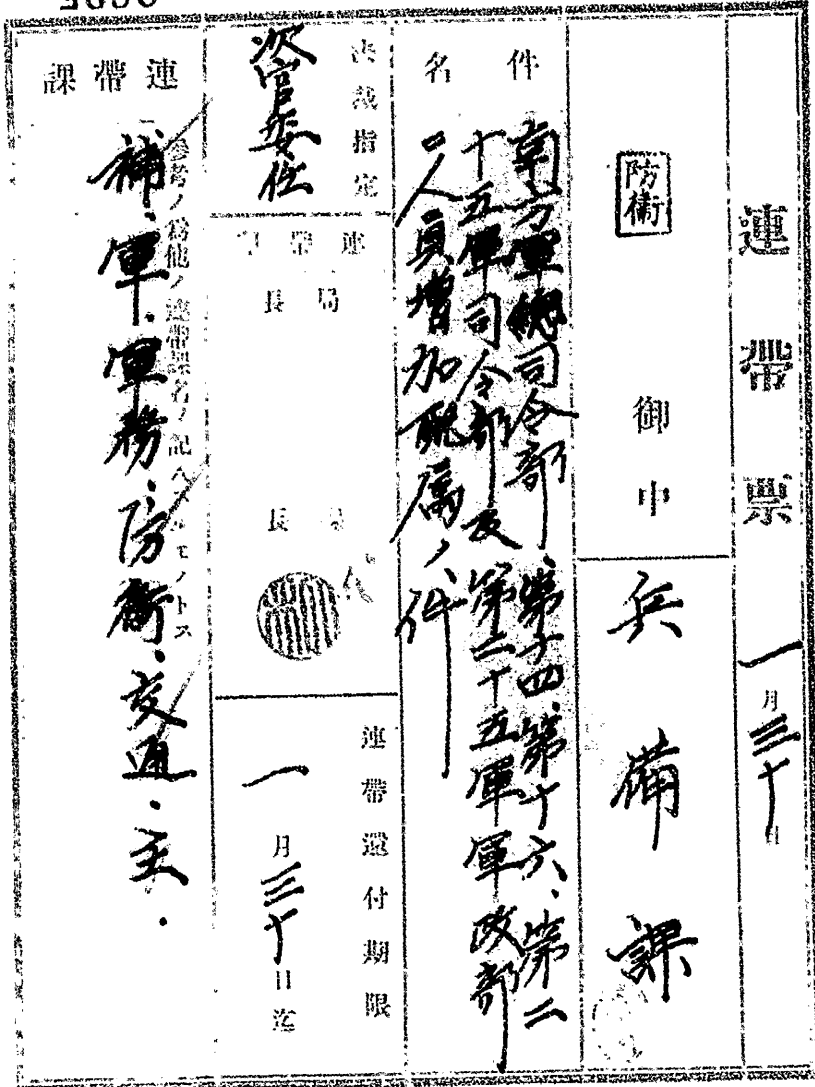 連帶票
一月三十日
防衛
御中
兵備課
件名
南方軍總司令部、第十四、第十六、第二
十五軍司令部及第二十五軍軍政部
ニ人員増加配属ノ件
決裁指定
次官委任
連帶
局長
長
代
連帶還付期限
一月三十日迄
連帶課
參考ノ爲他ノ連帶課名ノ記入
モノトス
補、軍、軍務、防衛、交通、主、